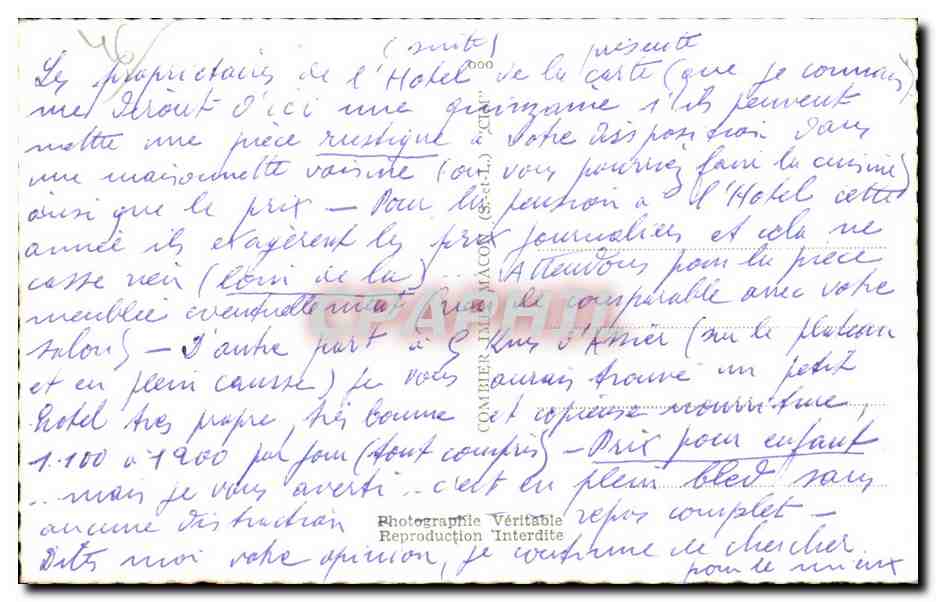 46
(suite)
Les propriétaires de l'Hôtel de la présente carte (que je connais)
me diront d'ici une quinzaine s'ils peuvent
mettre une pièce rustique à votre disposition dans
une maisonnette voisine (où vous pourriez faire la cuisine)
ainsi que le prix — Pour la pension à l'Hôtel cette
année ils exagèrent les prix journaliers et cela ne
casse rien (loin de là) ... Attendons pour la pièce
meublée éventuellement (rien de comparable avec votre
salon) — D'autre part à 5 Kms d'Assier (sur le plateau
et en plein causse) je vous aurais trouvé un petit
hotel très propre, très bonne et copieuse nourriture,
1.100 à 1200 par jour (tout compris) — Prix pour enfant
... mais je vous averti .. c'est en plein bled sans
aucune distraction repos complet —
Dites moi votre opinion, je continue de chercher
pour le mieux
COMBIER IMP. MACON (S.-et-L.) "CIM"
CPAPHIL
Photographie Véritable
Reproduction Interdite